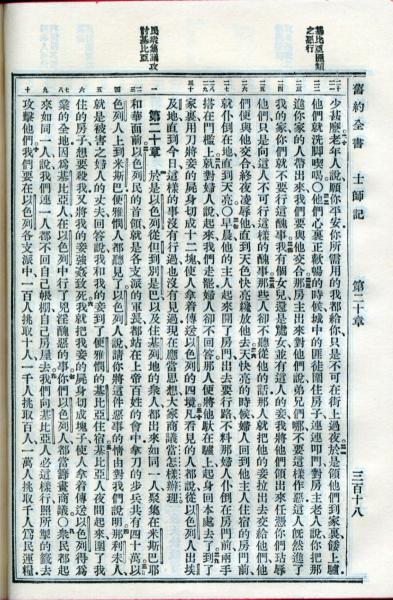 基比亞匪類之惡行
民衆集議攻討基比亞
舊約全書 士師記 第二十章 三百十八
少甚麽老年人說願你平安你所需用的我都給你只是不可在街上過夜於是領他們到家裏餧上驢
他們就洗脚喫喝〇他們心裏正歡暢的時候城中的匪徒圍住房子連連叩門對房主老人說你把那
進你家的人帶出來我們要與他交合那房主出來對他們說弟兄們哪不要這樣作惡這人旣然進了
我的家你們就不要行這醜事我有個女兒還是處女並有這人的妾我將他們領出來任憑你們玷辱
他們只是向這人不可行這樣的醜事那些人卻不聽從他的話那人就把他的妾拉出去交給他們他
們便與他交合終夜凌辱他直到天色快亮纔放他去天快亮的時候婦人回到他主人住宿的房門前
就仆倒在地直到天亮〇早晨他的主人起來開了房門出去要行路不料那婦人仆倒在房門前兩手
搭在門檻上就對婦人說起來我們走罷婦人卻不回答那人便將他馱在驢上起身回本處去了到了
家裏用刀將妾的屍身切成十二塊使人拿着傳送以色列的四境凡看見的人都說從以色列人出埃
及地直到今日這樣的事沒有行過也沒有見過現在應當思想大家商議當怎樣辦理
第二十章 於是以色列從但到別是巴以及住基列地的衆人都出來如同一人聚集在米斯巴耶
和華面前以色列民的首領就是各支派的軍長都站在上帝百姓的會中拿刀的步兵共有四十萬以
色列人上到米斯巴便雅憫人都聽見了以色列人說請你將這件惡事的情由對我們說明那利未人
就是被害之婦人的丈夫回答說我和我的妾到了便雅憫的基比亞住宿基比亞人夜間起來圍了我
住的房子想要殺我又將我的妾強姦致死我就把我妾的屍身切成塊子使人拿着傳送以色列得爲
業的全地因爲基比亞人在以色列中行了兇淫醜惡的事你們以色列人都當籌畫商議〇衆民都起
來如同一人說我們連一人都不回自己帳棚自己房屋去我們向基比亞人必這樣行照所掣的籤去
攻擊他們我們要在以色列各支派中一百人挑取十人一千人挑取百人一萬人挑取千人爲民運糧